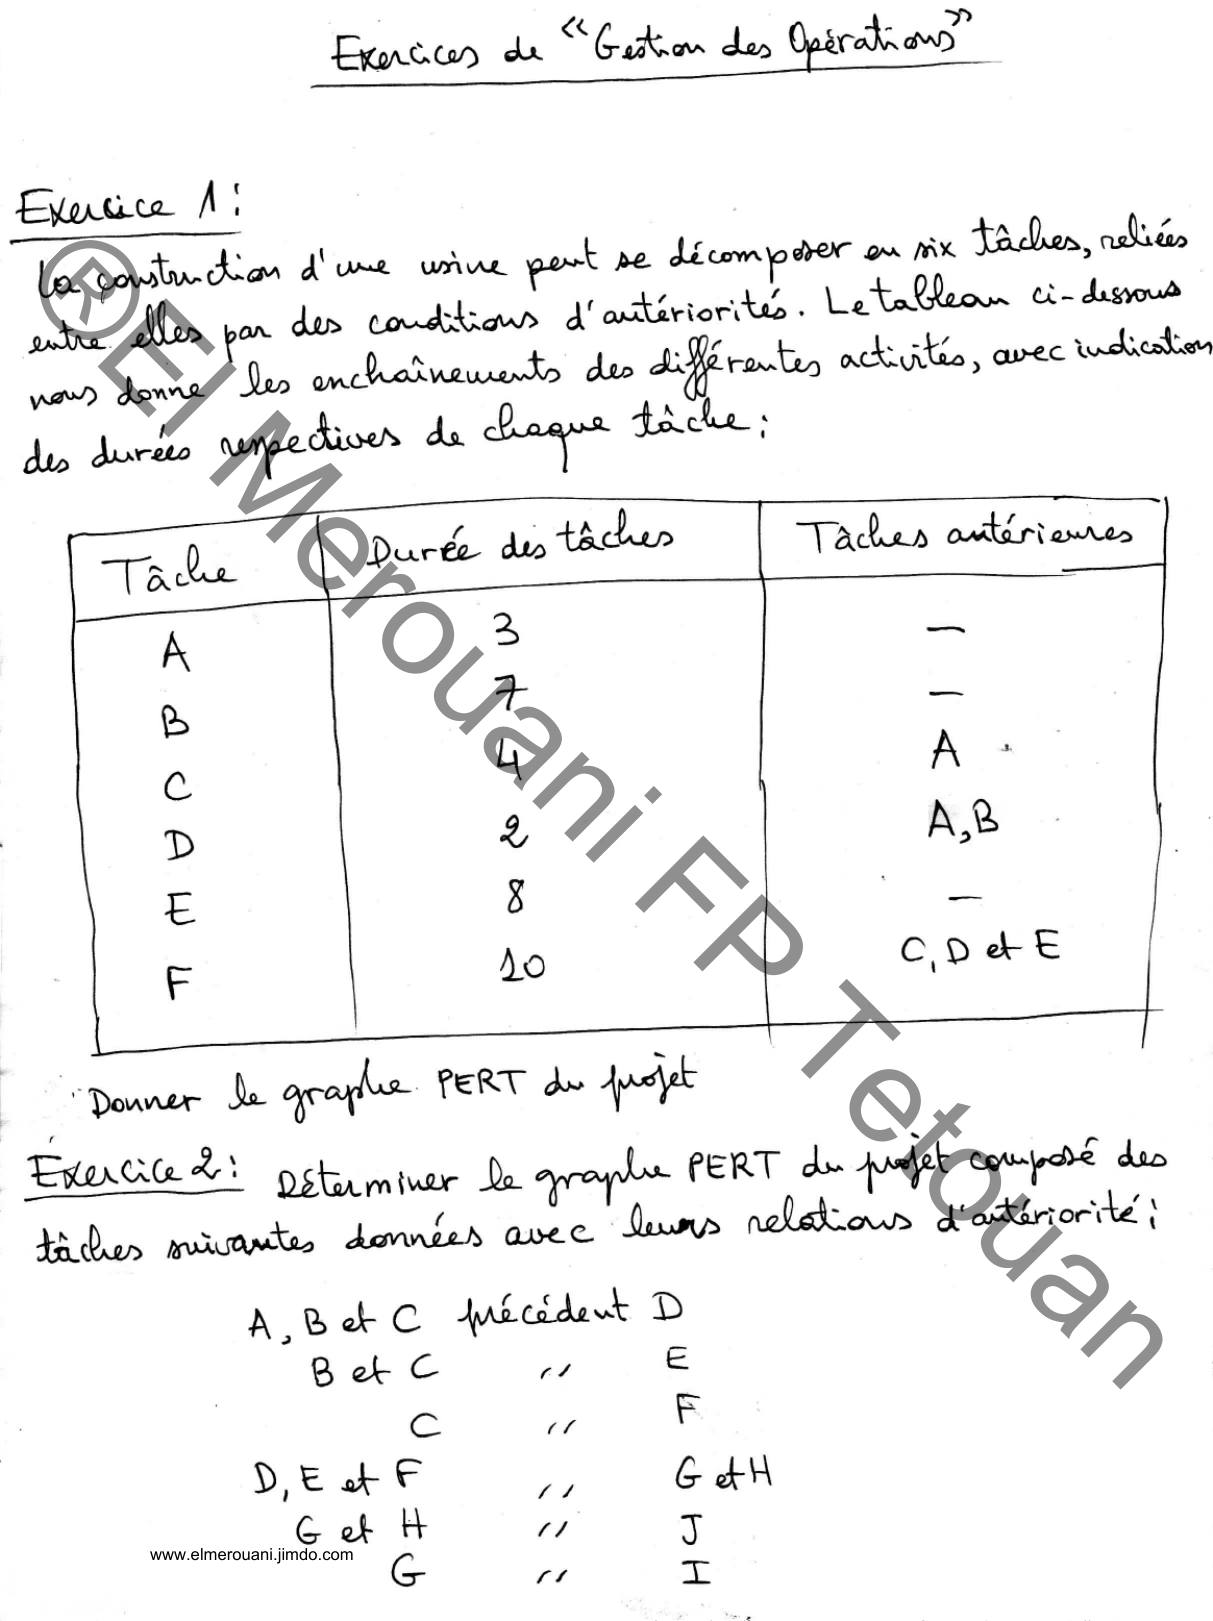 Exercices de "Gestion des Opérations"
Exercice 1:
La construction d'une usine peut se décomposer en six tâches, reliées
entre elles par des conditions d'antériorités. Le tableau ci-dessous
nous donne les enchaînements des différentes activités, avec indication
des durées respectives de chaque tâche:
Tâche Durée des tâches Tâches antérieures
A 3 —
B 7 —
C 4 A
D 2 A,B
E 8 —
F 10 C, D et E
Donner le graphe PERT du projet
Exercice 2: Déterminer le graphe PERT du projet composé des
tâches suivantes données avec leurs relations d'antériorité:
A, B et C précédent D
B et C " E
C " F
D, E et F " G et H
G et H " J
www.elmerouani.jimdo.com
G " I
®El Merouani FP Tetouan